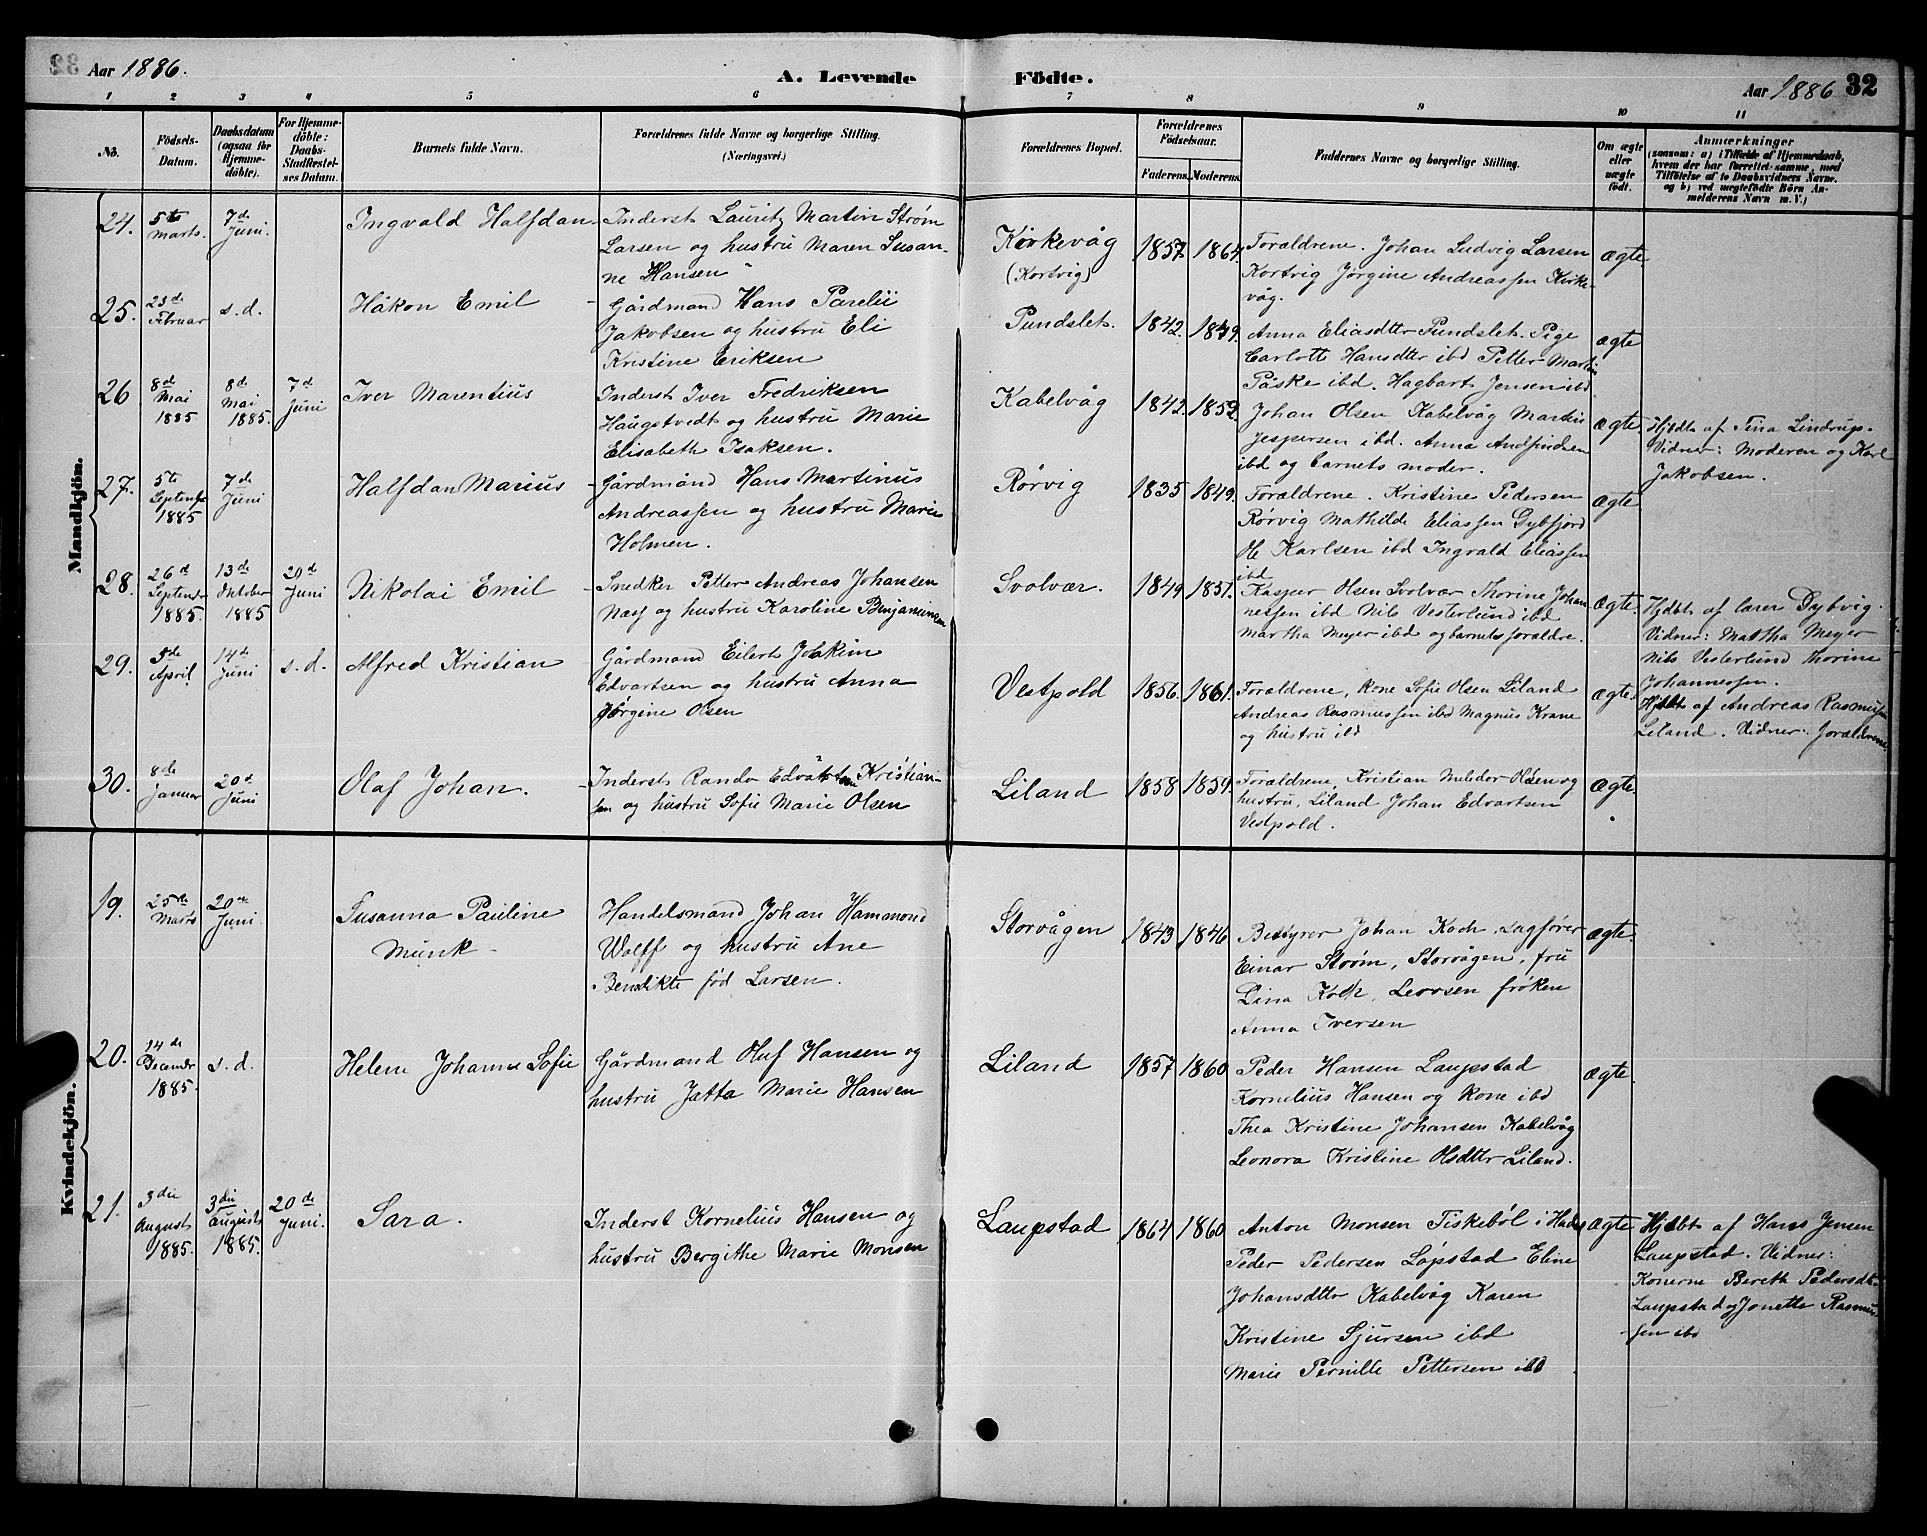 32
Aar 1886.
A. Levende Födte.
Aar 1886
32
1 2 3 4 5 6 7 8 9 10 11
No.
Födsels-
Datum.
Daabsdatum
(ogsaa for
Hjemme-
döbte).
For Hjemme-
döbte:
Daabs-
Stadfæstel-
ses Datum.
Barnets fulde Navn.
Forældrenes fulde Navne og borgerlige Stilling.
(Næringsvei.)
Forældrenes Bopæl.
Forældrenes
Födselsaar.
Faderens. Moderens.
Faddernes Navne og borgerlige Stilling.
Om ægte
eller
uægte
født.
Anmærkninger
(saasom: a) i Tilfælde af Hjemmedaab,
hvem der har forrettet samme, med
Tilföielse af to Daabsvidners Navne,
og b) ved uægtefödte Börn An-
melderens Navn m. V.)
Mandkjön.
24.
5te
Marts.
7de
Juni.
Ingvald Halfdan
Inderst Lauritz Martin Strøm
Larsen og hustru Maren Susan-
ne Hansen
Kirkevåg
(Kortvig)
1857. 1864.
Forældrene. Johan Ludvig Larsen
Kortvig Jørgine Andreassen Kirke-
våg.
ægte.
25.
23de
Februar
s.d.
Håkon Emil
Gårdmand Hans Parelii
Jakobsen og hustru Eli
Kristine Eriksen
Pundslet.
1842. 1849.
Anna Eliasdtter Pundslet. Pige
Carlotte Hansdtter ibd Petter Martin
Påske ibd. Hagbart Jensen ibd
ægte
26
8de
Mai
1885
8de
Mai
1885.
7d
Juni
Iver Marentius
Inderst Iver Fredriksen
Haugstvedt og hustru Marie
Elisabeth Isaksen.
Kabelvåg
1842. 1852.
Johan Olsen Kabelvåg Martin
Jespersen ibd. Anna Andfindsen
ibd og barnets moder.
ægte.
Hjdbt af Tina Lindrup.
Vidner: Moderen og Karl
Jakobsen.
27.
5te
Septembr
1885
7de
Juni
Halfdan Marius
Gårdmand Hans Martinus
Andreassen og hustru Marie
Holmen.
Rørvig
1835 1849.
Forældrene. Kristine Pedersen
Rørvig Mathilde Eliassen Dybfjord
Ole Karlsen ibd Ingvald Eliassen
ibd
ægte
28.
26d
Septembr
1885.
13de
Oktober
1885
20d
Juni
Nikolai Emil
Snedker Petter Andreas Johansen
Næss og hustru Karoline Benjaminsen
Svolvær.
1849 1851.
Kasper Olsen Svolvær Thorine Johan
nessen ibd Nils Vesterlund ibd
Martha Meyer ibd og barnets forældre.
ægte.
Hjdbt af lærer Dybvig.
Vidner: Martha Meyer
Nils Vesterlund Thorine
Johannessen.
29.
5de
April
14d
Juni
s.d.
Alfred Kristian
Gårdmand Eilert Jokkim
Edvartsen og hustru Anna
Jørgine Olsen
Vestpold
1856. 1861.
Forældrene, Kone Sofie Olsen Liland
Andreas Rasmussen ibd Magnus Krane
og hustru ibd
ægte.
Hjdbt af Andreas Rasmussen
Liland. Vidner: forældrene
30.
8de
Januar
20d
Juni
Olaf Johan.
Inderst Rando Edvartsen Kristian-
sen og hustru Sofie Marie Olsen
Liland
1858 1859.
Forældrene, Kristian Meledor Olsen og
hustru, Liland Johan Edvartsen
Vestpold.
ægte.
Kvindekjön.
19.
25de
Marts
20de
Juni
Susanna Pauline
Munk
Handelsmand Johan Hammond
Wolff og hustru Ane
Benedikte fød Larsen.
Storvågen
1843 1846
Bestyrer Johan Koch, Sagfører
Einar Strøm, Storvågen, fru
Dina Koch, Leovsen frøken
Anna Iversen
ægte.
20.
14de
Decembr
1885.
s.d.
Helene Johanne Sofie
Gårdmand Oluf Hansen og
hustru Jatta Marie Hansen
Liland
1857 1860
Peder Hansen Laupstad
Kornelius Hansen og Kone ibd
Thea Kristine Johansen Kabelvåg
Leonora Kristine Olsdtter Liland.
ægte.
21.
3die
August
1885.
3die
August
1885.
20de
Juni.
Sara.
Inderst Kornelius Hansen og
hustru Bergithe Marie Monsen
Laupstad
1864 1860
Anton Monsen Fiskebøl i Hadsel
Peder Pedersen Løpstad Eline
Johansdtter Kabelvåg Karen
Kristine Sjursen ibd
Marie Pernille Pettersen ibd
ægte
Hjdbt af Hans Jensen
Laupstad. Vidner:
Konerne Bereth Pedersdt.
Laupstad og Jonette Rasmus-
sen ibd